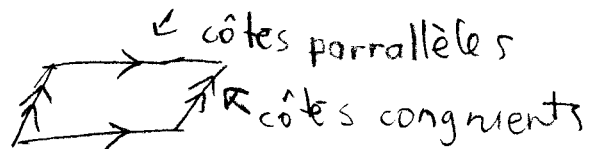 côtes parrallèles
côtés congruents